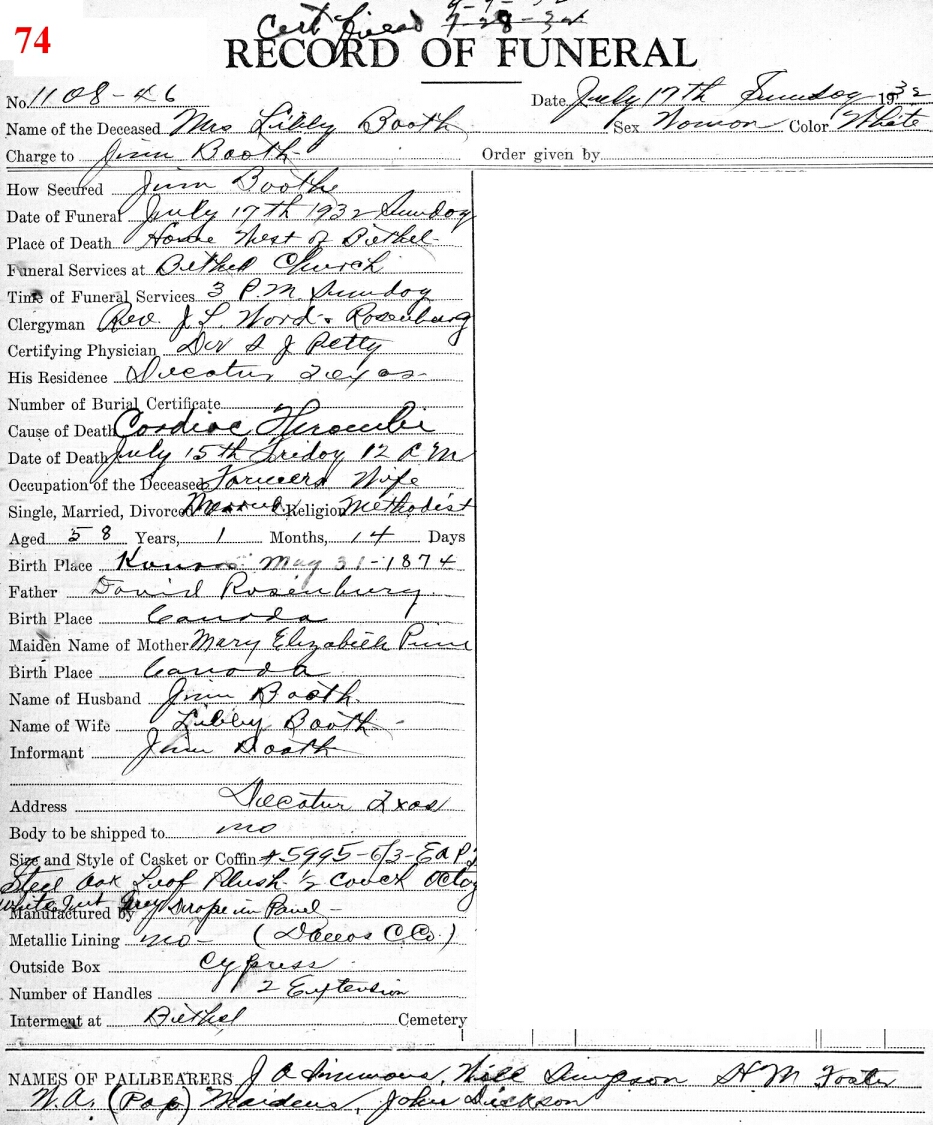 Cert filed
74
RECORD OF FUNERAL
No. 1108-46
Date July 17th Sunday 1932
Name of the Deceased Mrs Libby Booth Sex Woman Color White
Charge to Jim Booth Order given by
How Secured Jim Boothe
Date of Funeral July 17th 1932 Sunday
Place of Death Home West of Bethel
Funeral Services at Bethel Church
Time of Funeral Services 3 P.M. Sunday
Clergyman Rev. J. L. Word - Rosenburg
Certifying Physician Dr S J Petty
His Residence Decatur Texas
Number of Burial Certificate
Cause of Death Cardiac
Date of Death July 15th Friday 12 A M
Occupation of the Deceased Farmers Wife
Single, Married, Divorced Married Religion Methodist
Aged 58 Years, 1 Months, 14 Days
Birth Place Kansas May 31-1874
Father David Rosenburg
Birth Place Canada
Maiden Name of Mother Mary Elizabeth
Birth Place Canada
Name of Husband Jim Booth
Name of Wife Libby Booth
Informant Jim Booth
Address Decatur Texas
Body to be shipped to no
Size and Style of Casket or Coffin #5995-6/3-
Steel Oak Leaf Plush ½ Couch Octog
white Grey Drape in Panel
Manufactured by
Metallic Lining no - (Dallas C. Co.)
Outside Box Cypress
Number of Handles 2 Extension
Interment at Bethel Cemetery
NAMES OF PALLBEARERS J A Simmons, Will Simpson H M Foster
W.A. (Pap) Mardens, John Dickson